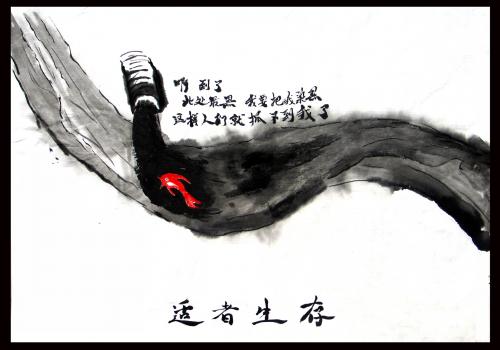 啊 到了
此处最黑 我要把我染黑
这样人们就抓不到我了
适者生存